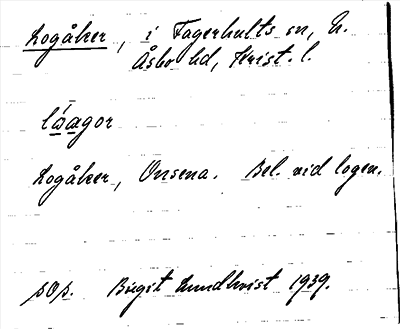 Logåker, i Fagerhults sn, N.
Åsbo hd, Krist. l.
Logåker, Onsena. Bel. vid logen.
sop. Birgit Lundkvist 1939.